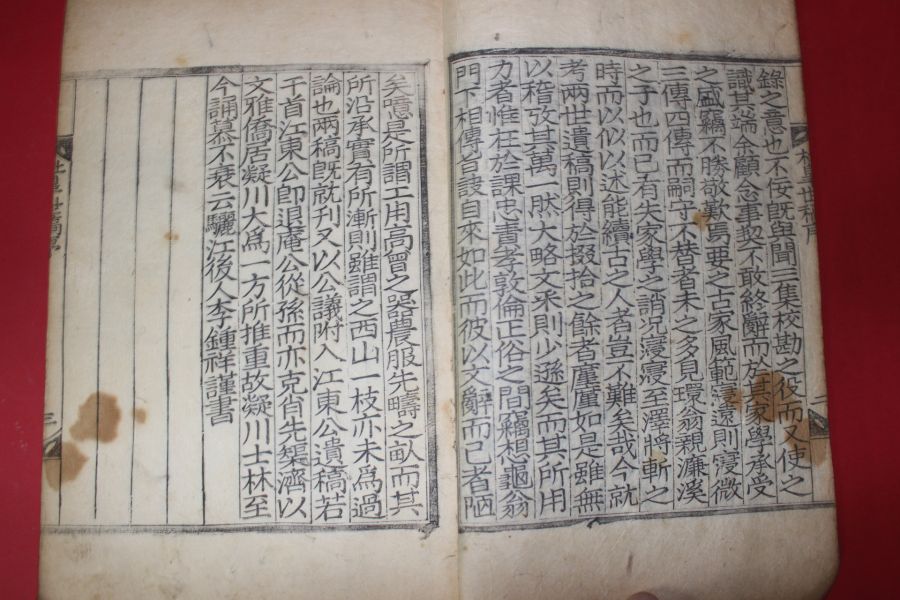 錄之意也不佞旣與聞三集校勘之役而又使之
識其端余顧念事契不敢終辭而於其家學承受
之盛竊不勝敬歎焉要之古家風範寖遠則寖微
三傳四傳而嗣守不替者未之多見環翁親濂溪
之子也而已有失家學之誚況寖寖至澤將斬之
時而以似以述能續古之人者豈不難矣哉今就
考兩世遺稿則得於掇拾之餘者厪厪如是雖無
以稽攷其萬一然大略文采則少遜矣而其所用
力者惟在於課忠責孝敦倫正俗之間竊想龜翁
門下相傳旨訣自來如此而彼以文辭而已者陋
矣噫是所謂工用高曾之器農服先疇之畝而其
所沿承實有所漸則雖謂之西山一枝亦未爲過
論也兩稿旣就刊又以公議附入江東公遺稿若
干首江東公卽退庵公從孫而亦克肖先榘濟以
文雅僑居凝川大爲一方所推重故凝川士林至
今誦慕不衰云驪江後人李鍾祥謹書